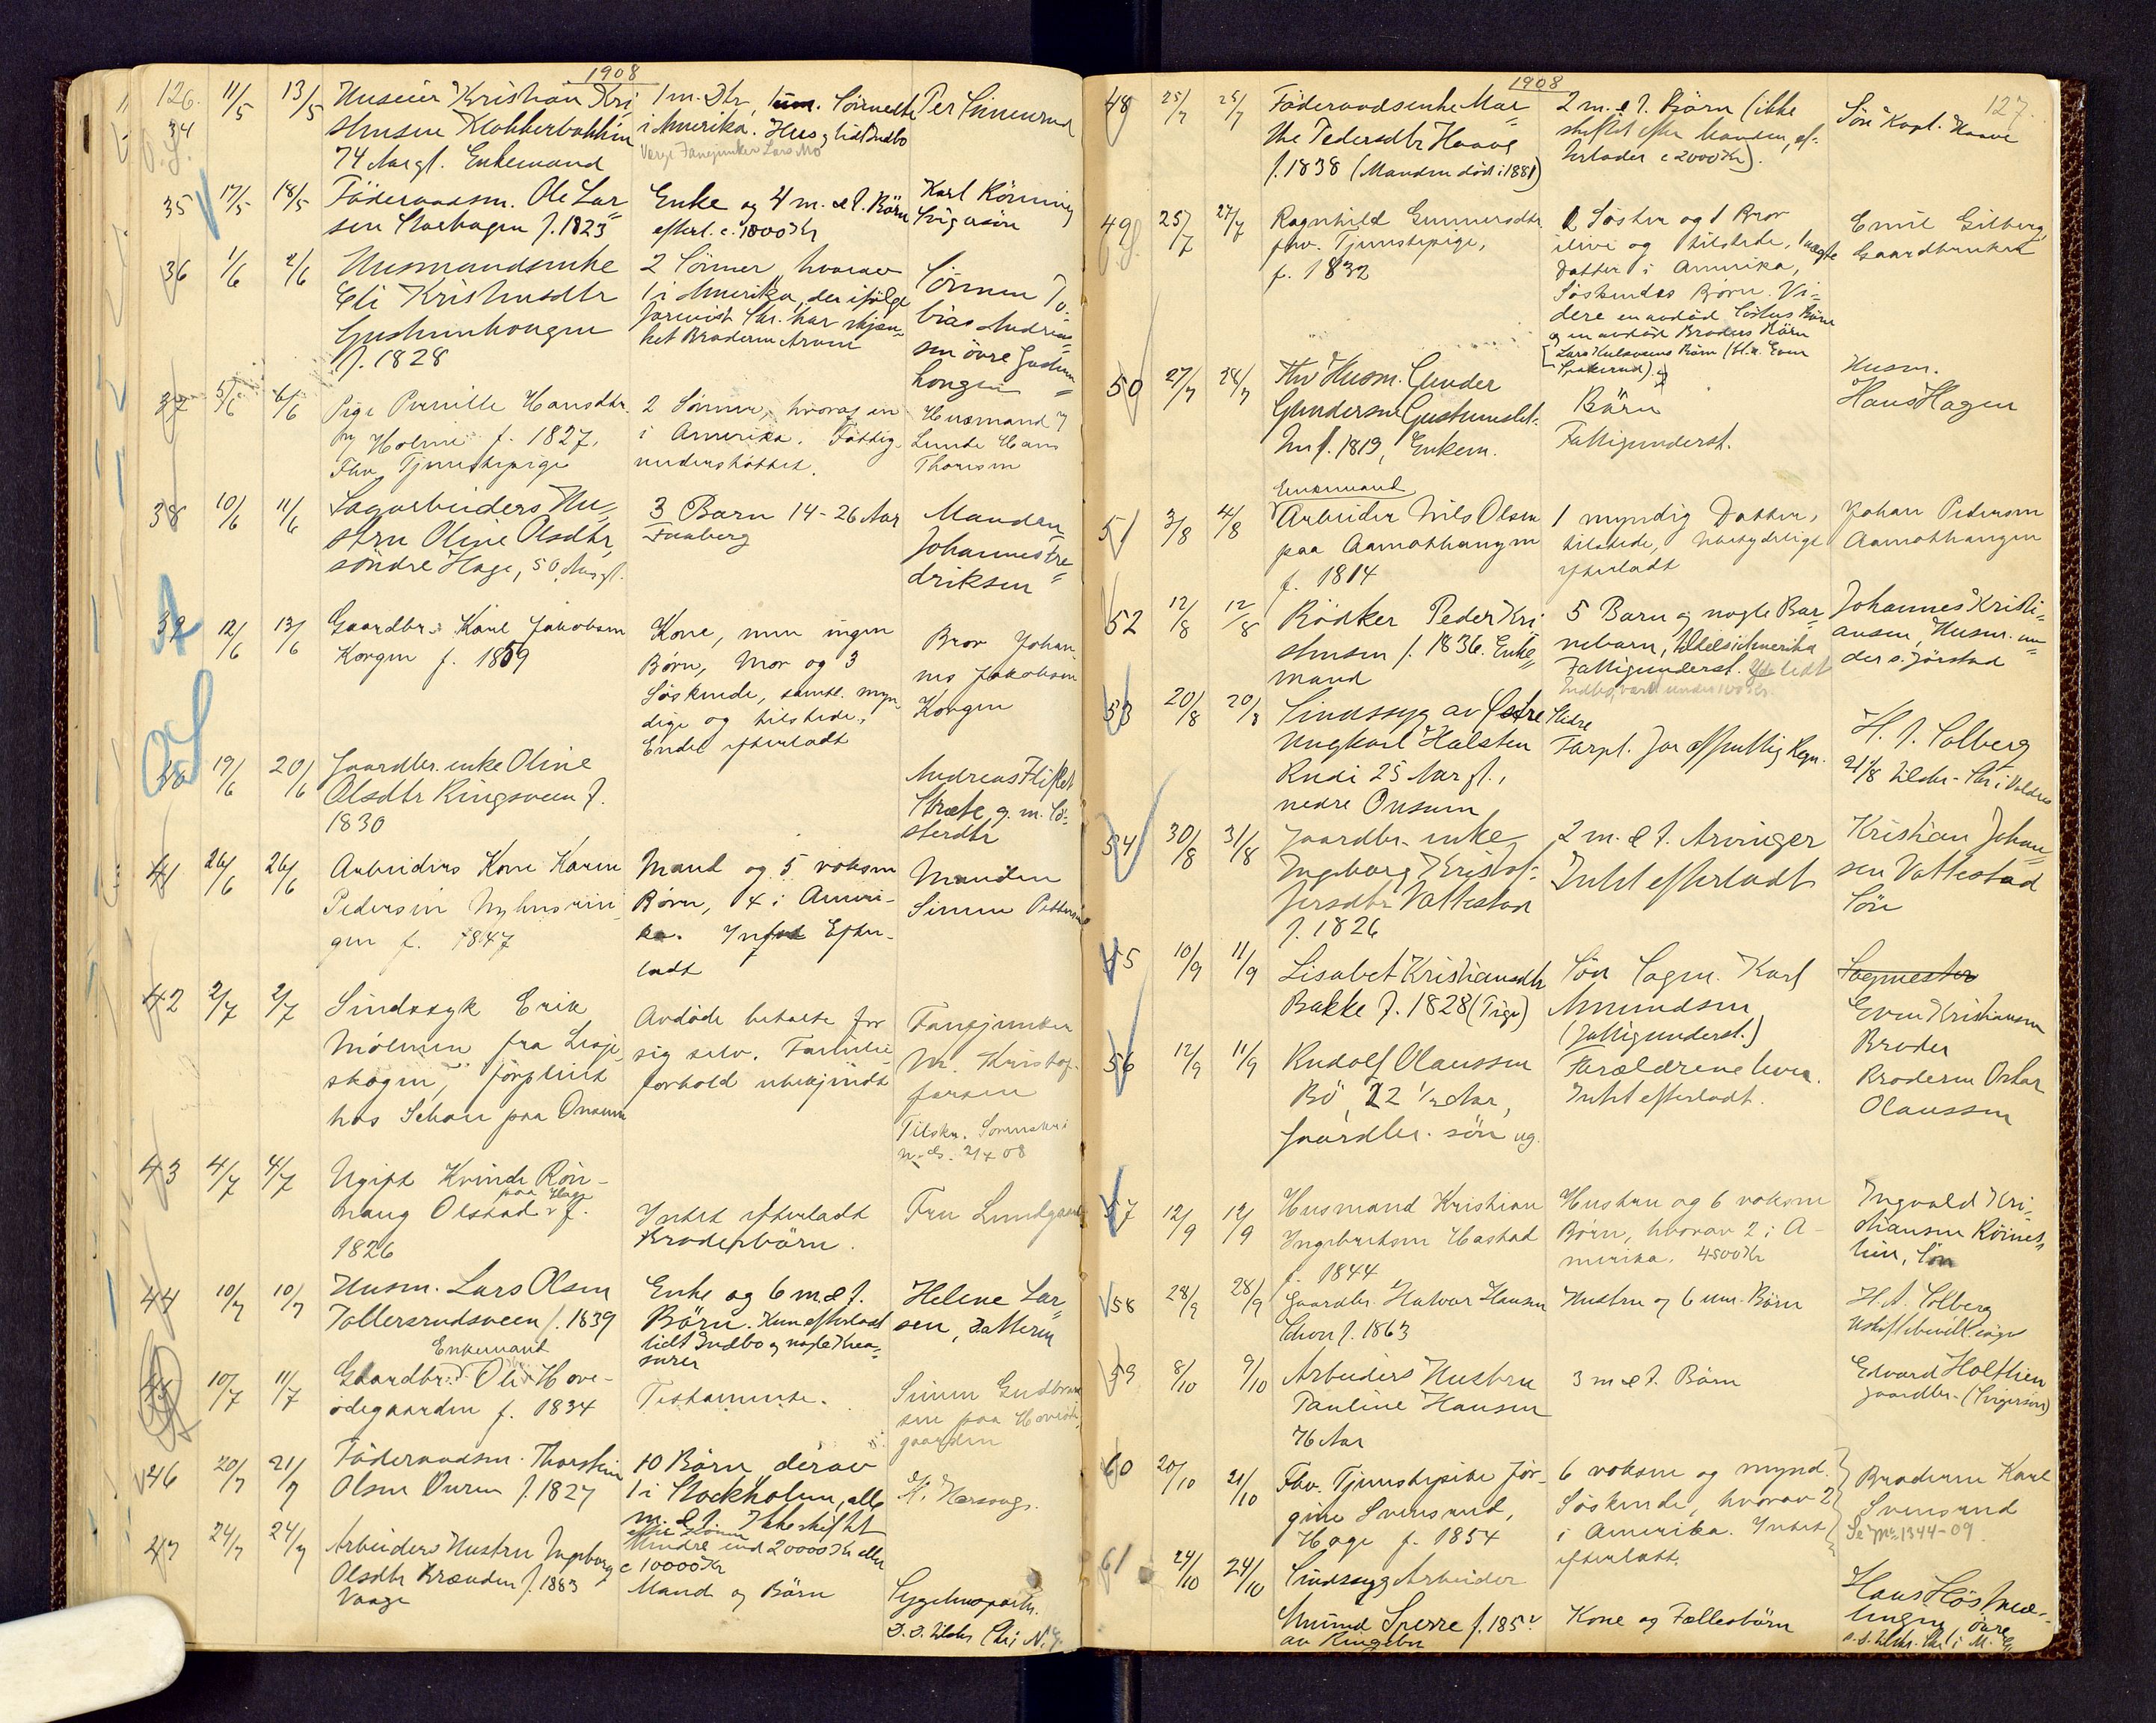 1908
126.
34 11/5 13/5 Huseier Kristian Kri
stensen Klokkerbakken
74 Aar gl. Enkemand
1 m. Dtr, 1 um. Sönnedtr
i Amerika. Hus og lidt Indbo
Værge Fanejunker Lars Mo
Per
35 17/5 18/5 Föderaadsm. Ole Lar
sen Storhagen f. 1823
Enke og 4 m. & t. Börn
efterl. c. 1000 Kr
Karl Rönning
Svigersön
36 1/6 2/6 Husmandsenke
Eli Kristensdtr
f. 1828
2 Sönner, hvorav
1 i Amerika, der ifölge
har skjæn
ket Broderen Arven
Sönnen To-
bias Andrea-
sen övre
37 5/6 6/6 Pige Pernille Hansdtr.
f. 1827.
Fhv. Tjenestepige
2 Sönner, hvoraf en
i Amerika. Fattig-
understöttet.
Husmand
Lunde Hans
Thoresen
38 10/6 11/6 Sagarbeiders Hu-
stru Oline Olsdtr,
söndre Hage, 50 Aar gl.
3 Barn 14-26 Aar
Faaberg
Manden
Johannes Fre-
driksen
39 12/6 13/6 Gaardbr. Karl Jakobsen
Korgen f. 1859
Kone, men ingen
Börn, Mor og 3
Söskende, samtl. myn-
dige og tilstede.
Endel efterladt
Bror Johan-
nes Jakobsen
Korgen
19/6 20/6 Gaardbr. enke Oline
Olsdtr Ringsveen f.
1830
Andreas
Stræte g. m. Sö-
sterdtr
41 26/6 26/6 Arbeiders Kone Karen
Pedersen
gen f. 1847
Mand og 5 voksne
Börn, 4 i Ameri-
ka. Intet Efter-
ladt
Manden
Simen Pettersen
42 2/7 2/7 Sindssyk Erik
Mölmen fra Lesje-
skogen, forpleiet
hos Schou paa Onsum
Avdöde betalte for
sig selv. Familie-
forhold ubekjendt
Fanejunker
M. Kristof-
fersen
Tilskr. Sorenskri
43 4/7 4/7 Ugift Kvinde Rön-
naug Olstad paa Hage f.
1826
Intet efterladt
Broderbörn.
Fru Lundgaard
44 10/7 10/7 Husm. Lars Olsen
Tollersrudsveen f. 1839
Enke og 6 m. & t.
Börn. Kun efterladt
lidt Indbo og nogle Krea-
turer
Helene Lar-
sen, Datteren
10/7 11/7 Enkemand
Gaardbr. Ole Hove-
ödegaarden f. 1834
Testamente.
Simen Gudbrand
sen paa Hoveöde-
gaarden
46 20/7 21/7 Föderaadsm. Thorstein
Olsen Duren f. 1827
10 Börn, derav
1 i Stockholm, alle
m. & t. Ikke skiftet
efter Konen
Mindre end 20000 Kr eller
c 10000 Kr
47 24/7 24/7 Arbeiders Hustru Ingeborg
Olsdtr Brænden f. 1883
Vaage
Mand og Börn
1908
127.
48 25/7 25/7 Föderaadsenke Mar-
the Pedersdtr Haave
f. 1838 (Manden död i 1881)
2 m. & t. Börn (ikke
skiftet efter Manden, ef-
terlader c 2000 Kr).
Sön Kapt. Haave
49 25/7 27/7 Ragnhild Gunnersdtr.
fhv. Tjenestepige,
f. 1832
1 Söster og 1 Bror
ilive og tilstede, 1 uægte
Datter i Amerika,
Söskendes Börn. Vi-
dere en avdöd Sösters Börn
og en avdöd Broders Börn
Emil Gilberg,
Gaardbruker
50 27/7 28/7 Fhv Husm. Gunder
Gundersen
f. 1819, Enkem.
Börn
Fattigunderst.
Husm.
Hans Hagen
51 3/8 4/8 Enkemand
Arbeider Nils Olsen
paa Aamothaugen
f. 1814
1 myndig Datter,
tilstede, ubetydelige
efterladt
Johan Pedersen
Aamothaugen
52 12/8 12/8 Bödker Peder Kri
stensen f. 1836. Enke-
mand
5 Barn og nogle Bar-
nebarn, tildels i Amerika
Fattigunderst. lidt
Indbo, værd under 100 Kr.
Johannes Kristi-
ansen, Husm. un-
der s. Jörstad
53 20/8 20/8 Sindssyg av Östre Slidre
Ungkarl Halsten
Rudi 25 Aar gl.,
nedre Onsum
Forpl. for offentlig Regn.
H. J. Solberg
21/8 tilskr. Skr i Valdres
54 30/8 31/8 Gaardbr. enke
Ingeborg Kristof-
fersdtr Vattestad
f. 1826
2 m. & t. Arvinger
Intet efterladt
Kristian Johan-
sen Vattestad
Sön
55 10/9 11/9 Lisabet Kristiansdtr
Bakke f. 1828 (Pige)
Sön Sagm. Karl
Amundsen
(Fattigunderst.)
Sagmester
Even Kristiansen
Broder
56 12/9 11/9 Rudolf Olaussen
Bö, 22 1/2 Aar,
Gaardbr. sön ug.
Forældrene lever.
Intet efterladt.
Broderen Oskar
Olaussen
57 12/9 12/9 Husmand Kristian
Ingebretsen Hastad
f. 1844
Hustru og 6 voksne
Börn, hvorav 2 i A-
merika. 4500 Kr
Ingvald Kri-
stiansen
Sön
58 28/9 28/9 Gaardbr. Halvor Hansen
Schou f. 1863
Hustru og 6 um. Börn
H. A. Solberg
59 8/10 9/10 Arbeiders Hustru
Pauline Hansen
76 Aar
3 m & t. Börn
Edvard Holthen
Gaardbr. (Svigersön)
60 20/10 21/10 Fhv. Tjenestepike Jör-
gine Svensrud,
Hage f. 1854
6 voksne og mynd.
Söskende, hvorav 2
i Amerika. Intet
efterladt.
Broderen Karl
Svensrud
Se 1344-09.
61 24/10 24/10 Sindssyg Arbeider
Amund Sperre f. 185
av Ringebu
Kone og Fællesbörn
Hans